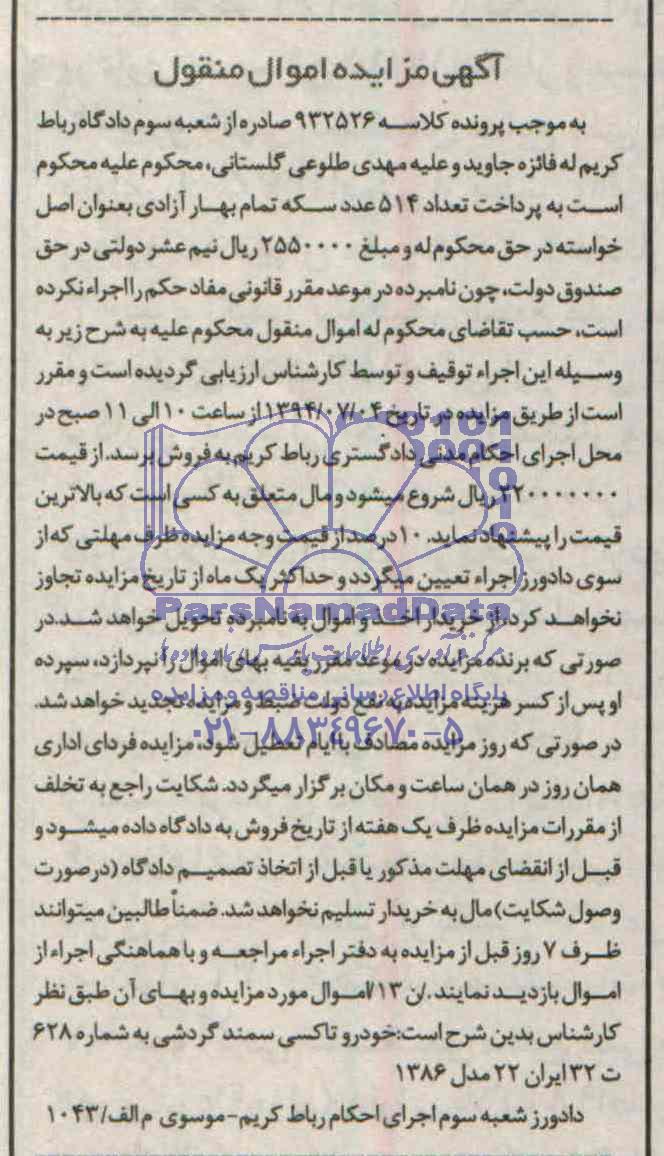 آگهی مزایده اموال منقول
به موجب پرونده کلاسه ۹۳۲۵۲۶ صادره از شعبه سوم دادگاه رباط
کریم له فائزه جاوید و علیه مهدی طلوعی گلستانی، محکوم علیه محکوم
است به پرداخت تعداد ۵۱۴ عدد سکه تمام بهار آزادی بعنوان اصل
خواسته در حق محکوم له و مبلغ ۲۵۵۰۰۰۰ ریال نیم عشر دولتی در حق
صندوق دولت، چون نامبرده در موعد مقرر قانونی مفاد حکم را اجراء نکرده
است، حسب تقاضای محکوم له اموال منقول محکوم علیه به شرح زیر به
وسیله این اجراء توقیف و توسط کارشناس ارزیابی گردیده است و مقرر
است از طریق مزایده در تاریخ ۱۳۹۴/۰۷/۰۴ از ساعت ۱۰ الی ۱۱ صبح در
محل اجرای احکام مدنی دادگستری رباط کریم به فروش برسد. از قیمت
ریال شروع میشود و مال متعلق به کسی است که بالاترین
قیمت را پیشنهاد نماید. ۱۰ درصد از قیمت وجه مزایده ظرف مهلتی که از
سوی دادورز اجراء تعیین میگردد و حداکثر یک ماه از تاریخ مزایده تجاوز
نخواهد کرد، از خریدار اخذ و اموال به نامبرده تحویل خواهد شد. در
ParsNamadData
صورتی که برنده مزایده در موعد مقرر بقیه بهای اموال را نپردازد، سپرده
مرکز فرآوری اطلاعات پارس نماد داده ها
او پس از کسر هزینه مزایده به نفع دولت ضبط و مزایده تجدید خواهد شد.
پایگاه اطلاع رسانی مناقصه و مزایده
در صورتی که روز مزایده مصادف با ایام تعطیل شود، مزایده فردای اداری
۰۲۱-۸۸۳۴۹۶۷۰-۵
همان روز در همان ساعت و مکان برگزار میگردد. شکایت راجع به تخلف
از مقررات مزایده ظرف یک هفته از تاریخ فروش به دادگاه داده میشود و
قبل از انقضای مهلت مذکور یا قبل از اتخاذ تصمیم دادگاه (در صورت
وصول شکایت) مال به خریدار تسلیم نخواهد شد. ضمناً طالبین میتوانند
ظرف ۷ روز قبل از مزایده به دفتر اجراء مراجعه و با هماهنگی اجراء از
اموال بازدید نمایند./ن۱۳/اموال مورد مزایده و بهای آن طبق نظر
کارشناس بدین شرح است: خودرو تاکسی سمند گردشی به شماره ۶۲۸
ت ۳۲ ایران ۲۲ مدل ۱۳۸۶
دادورز شعبه سوم اجرای احکام رباط کریم-موسوی م الف/۱۰۴۳